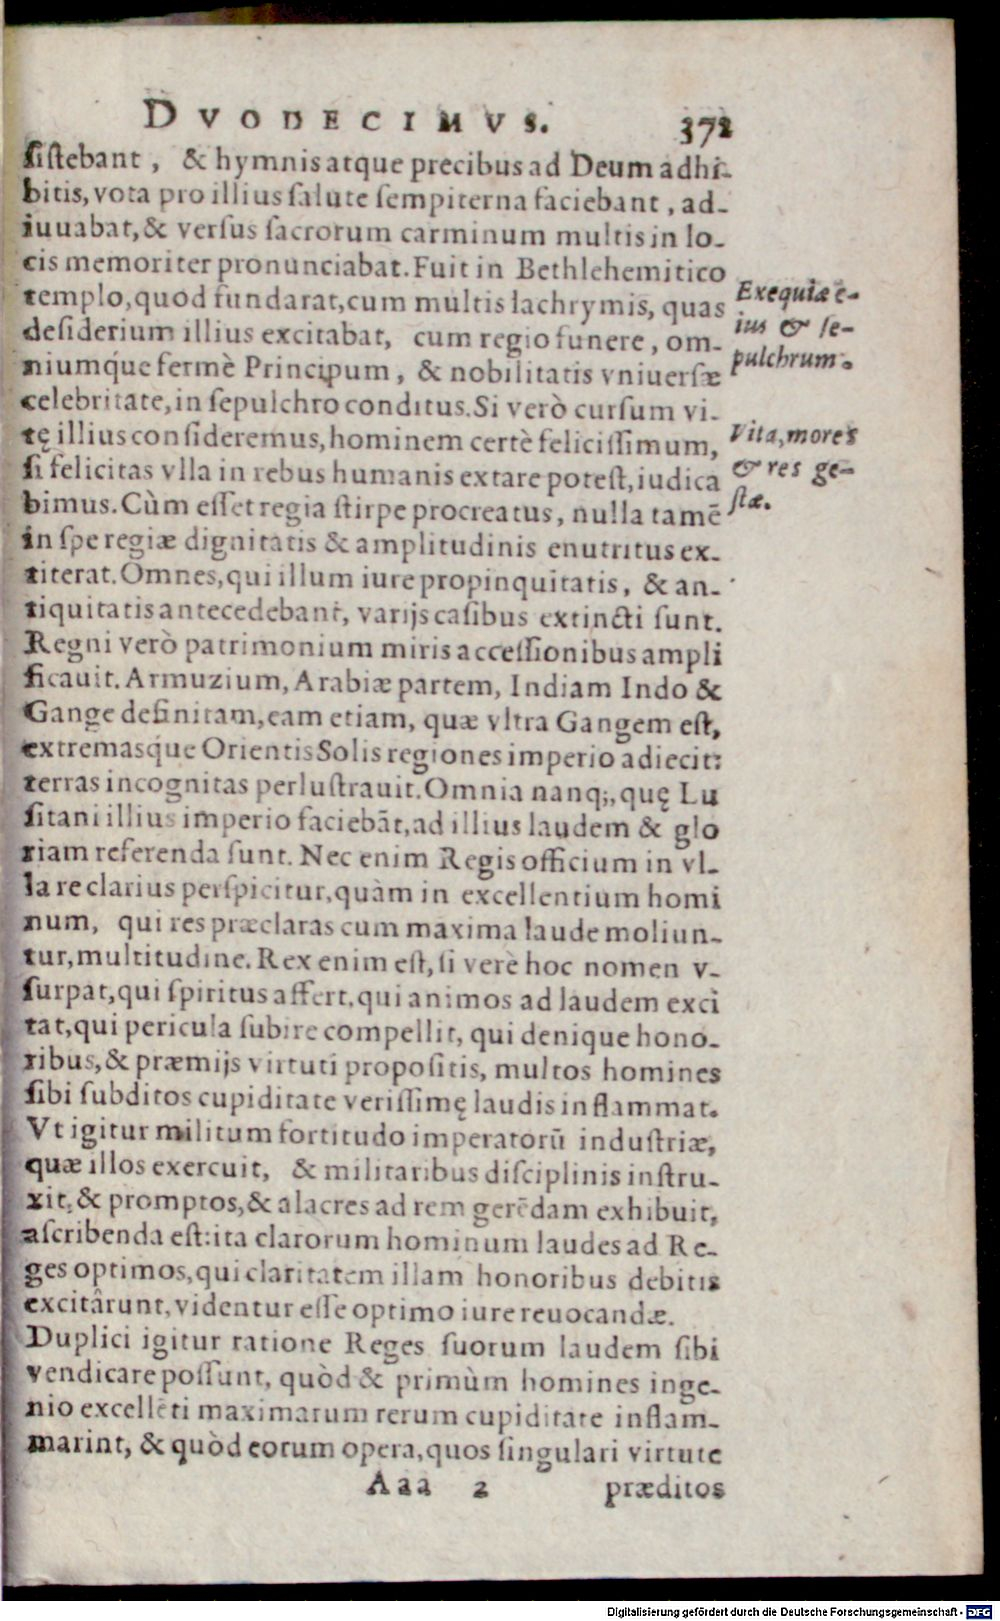 DVODECIMVS. 372
ſiſtebant, & hymnis atque precibus ad Deum adhi-
bitis, vota pro illius ſalute ſempiterna faciebant, ad-
iuuabat, & verſus ſacrorum carminum multis in lo-
cis memoriter pronunciabat. Fuit in Bethlehemitico
templo, quod fundarat, cum multis lachrymis, quas
deſiderium illius excitabat, cum regio funere, om-
niumq́ue fermè Principum, & nobilitatis vniuerſæ
celebritate, in ſepulchro conditus. Si verò curſum vi-
tę illius conſideremus, hominem certè feliciſſimum,
ſi felicitas vlla in rebus humanis extare poteſt, iudica
bimus. Cùm eſſet regia ſtirpe procreatus, nulla tamē
in ſpe regiæ dignitatis & amplitudinis enutritus ex-
titerat. Omnes, qui illum iure propinquitatis, & an-
tiquitatis antecedebant, varijs caſibus extincti ſunt.
Regni verò patrimonium miris acceſſionibus ampli
ficauit. Armuzium, Arabiæ partem, Indiam Indo &
Gange definitam, eam etiam, quæ vltra Gangem eſt,
extremasq́ue Orientis Solis regiones imperio adiecit:
terras incognitas perluſtrauit. Omnia nanq;, quę Lu
ſitani illius imperio faciebāt, ad illius laudem & glo
riam referenda ſunt. Nec enim Regis officium in vl-
la re clarius perſpicitur, quàm in excellentium homi
num, qui res præclaras cum maxima laude moliun-
tur, multitudine. Rex enim eſt, ſi verè hoc nomen v-
ſurpat, qui ſpiritus affert, qui animos ad laudem exci
tat, qui pericula ſubire compellit, qui denique hono-
ribus, & præmijs virtuti propoſitis, multos homines
ſibi ſubditos cupiditate veriſſimę laudis inflammat.
Vt igitur militum fortitudo imperatorū induſtriæ,
quæ illos exercuit, & militaribus diſciplinis inſtru-
xit, & promptos, & alacres ad rem gerēdam exhibuit,
aſcribenda eſt: ita clarorum hominum laudes ad Re-
ges optimos, qui claritatem illam honoribus debitis
excitârunt, videntur eſſe optimo iure reuocandæ.
Duplici igitur ratione Reges ſuorum laudem ſibi
vendicare poſſunt, quòd & primùm homines inge-
nio excellēti maximarum rerum cupiditate inflam-
marint, & quòd eorum opera, quos ſingulari virtute
Aaa 2 præditos
Exequiæ e-
ius & ſe-
pulchrum.
Vita, mores
& res ge-
ſtæ.
Digitalisierung gefördert durch die Deutsche Forschungsgemeinschaft - DFG